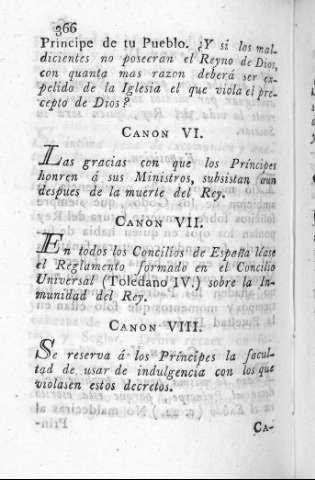 366
Principe de tu Pueblo. ¿Y si los mal-
dicientes no poseeran el Reyno de Dios,
con quanta mas razon deberá ser ex-
pelido de la Iglesia el que viola el pre-
cepto de Dios?
CANON VI.
Las gracias con que los Príncipes
honren á sus Ministros, subsistan aun
despues de la muerte del Rey.
CANON VII.
En todos los Concilios de España léase
el Reglamento formado en el Concilio
Universal (Toledano IV.) sobre la In-
munidad del Rey.
CANON VIII.
Se reserva á los Príncipes la facul-
tad de usar de indulgencia con los que
violasen estos decretos.
CA-